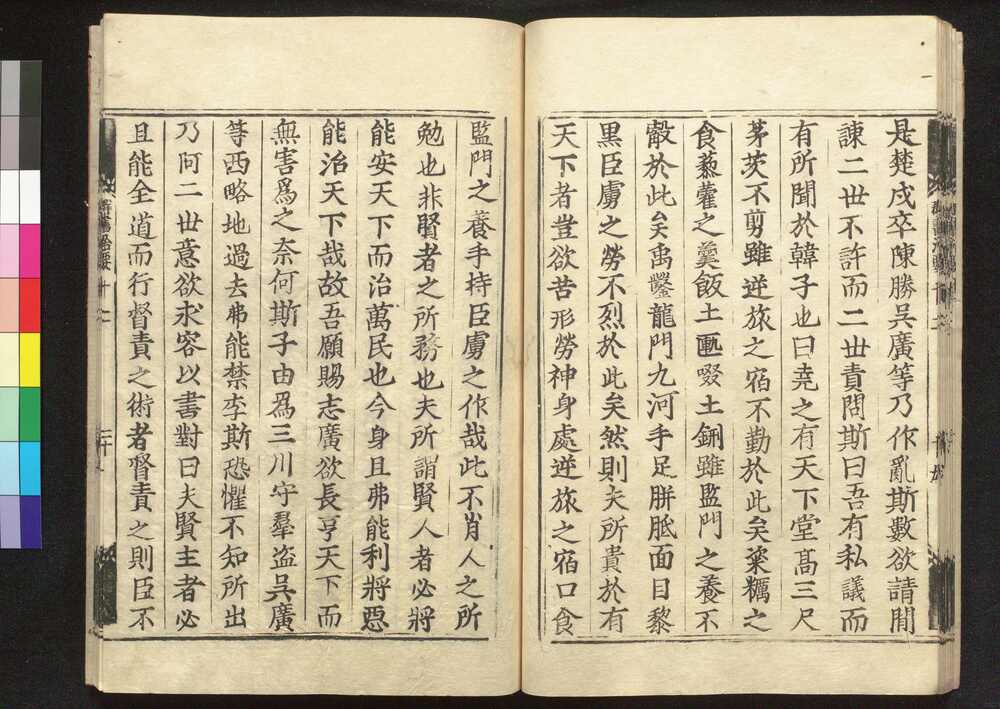 是楚戍卒陳勝吳廣等乃作亂斯數欲請閒
諫二世不許而二世責問斯曰吾有私議而
有所聞於韓子也曰堯之有天下堂髙三尺
茅茨不剪雖逆旅之宿不勤於此矣粢糲之
食藜藿之羹飯土匭啜土鉶雖監門之養不
觳於此矣禹鑿龍門九河手足胼胝面目黎
黒臣虜之勞不烈於此矣然則夫所貴於有
天下者豈欲苦形勞神身處逆旅之宿口食
監門之養手持臣虜之作哉此不肖人之所
勉也非賢者之所務也夫所謂賢人者必將
能安天下而治萬民也今身且弗能利將惡
能治天下哉故吾願賜志廣欲長享天下而
無害爲之奈何斯子由爲三川守羣盜吳廣
等西略地過去弗能禁李斯恐懼不知所出
乃阿二世意欲求容以書對曰夫賢主者必
且能全道而行督責之術者督責之則臣不